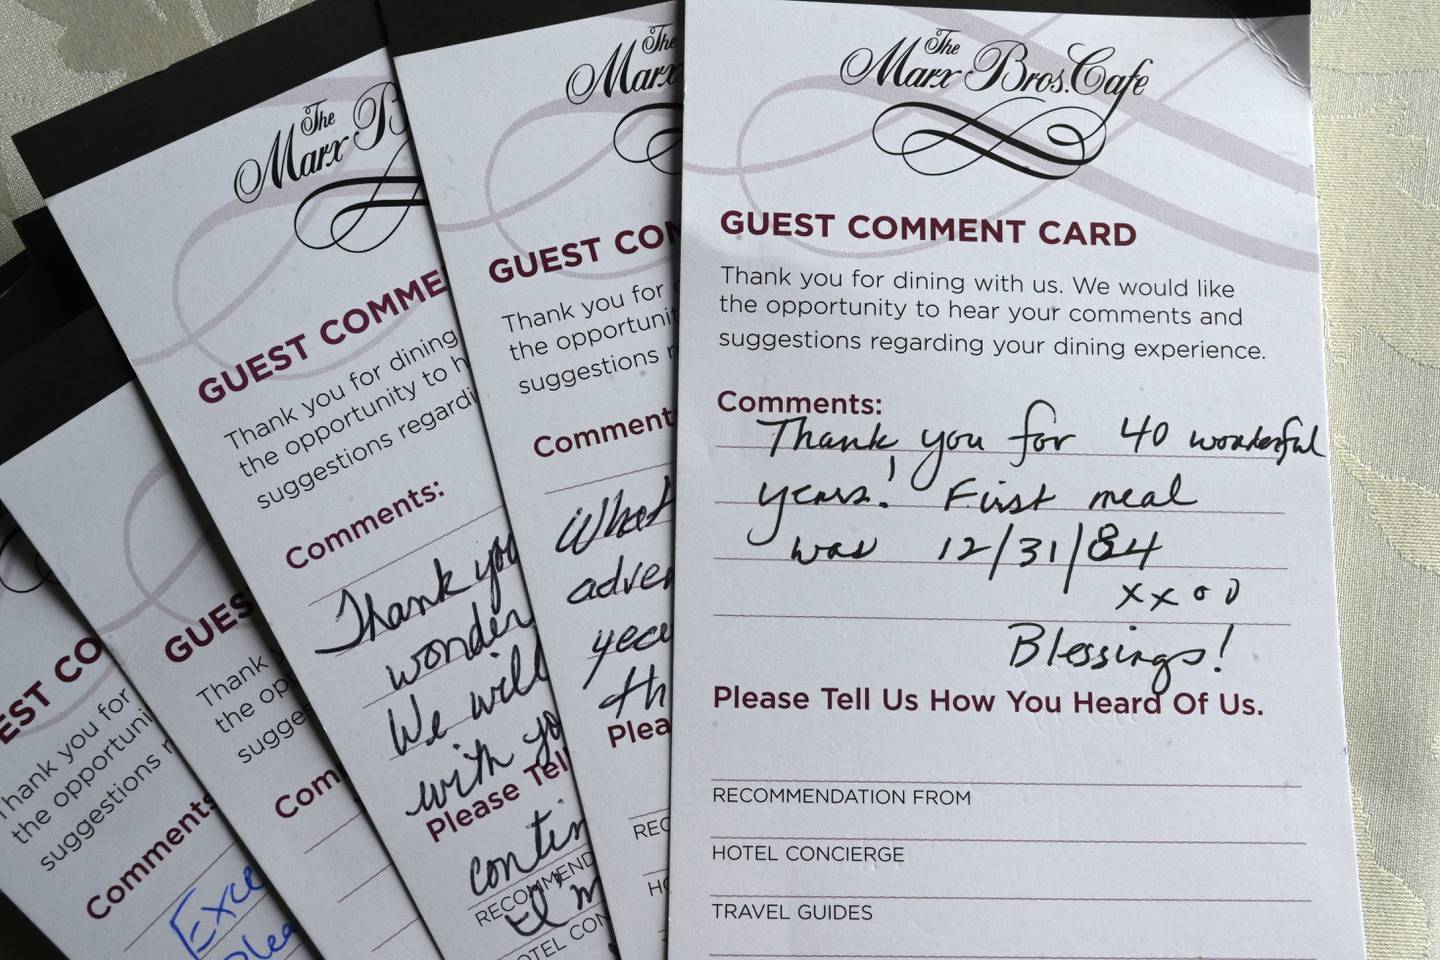 The
Marx Bros. Cafe
GUEST COMMENT CARD
Thank you for dining with us. We would like
the opportunity to hear your comments and
suggestions regarding your dining experience.
Comments:
Thank you for 40 wonderful
years! First meal
was 12/31/84
xxoo
Blessings!
Please Tell Us How You Heard Of Us.
RECOMMENDATION FROM
HOTEL CONCIERGE
TRAVEL GUIDES
The
Marx
GUEST COM
Thank you for
the opportunit
suggestions r
Comment
What
adve
yea
th
Plea
REC
HO
The
Marx B
GUEST COMME
Thank you for dining
the opportunity to h
suggestions regardi
Comments:
Thank you
wonder
We will
with yo
Please Tell
contin
RECOMMEND
El
HOTEL CON
GUES
Thank
the op
sugges
Com
EST CO
Thank you for
the opportuni
suggestions r
Comments
Exce
plea